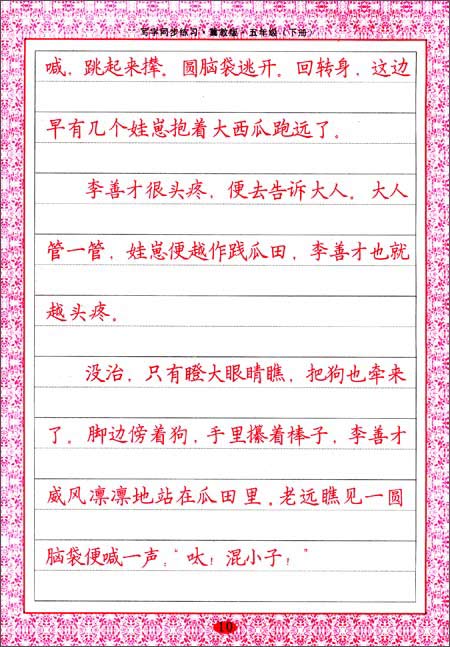 写字同步练习·冀教版·五年级(下册)
喊，跳起来撵。圆脑袋逃开。回转身，这边
早有几个娃崽抱着大西瓜跑远了。
李善才很头疼，便去告诉大人。大人
管一管，娃崽便越作践瓜田，李善才也就
越头疼。
没治，只有瞪大眼睛瞧，把狗也牵来
了。脚边傍着狗，手里攥着棒子，李善才
威风凛凛地站在瓜田里。老远瞧见一圆
脑袋便喊一声：“呔！混小子！”
10